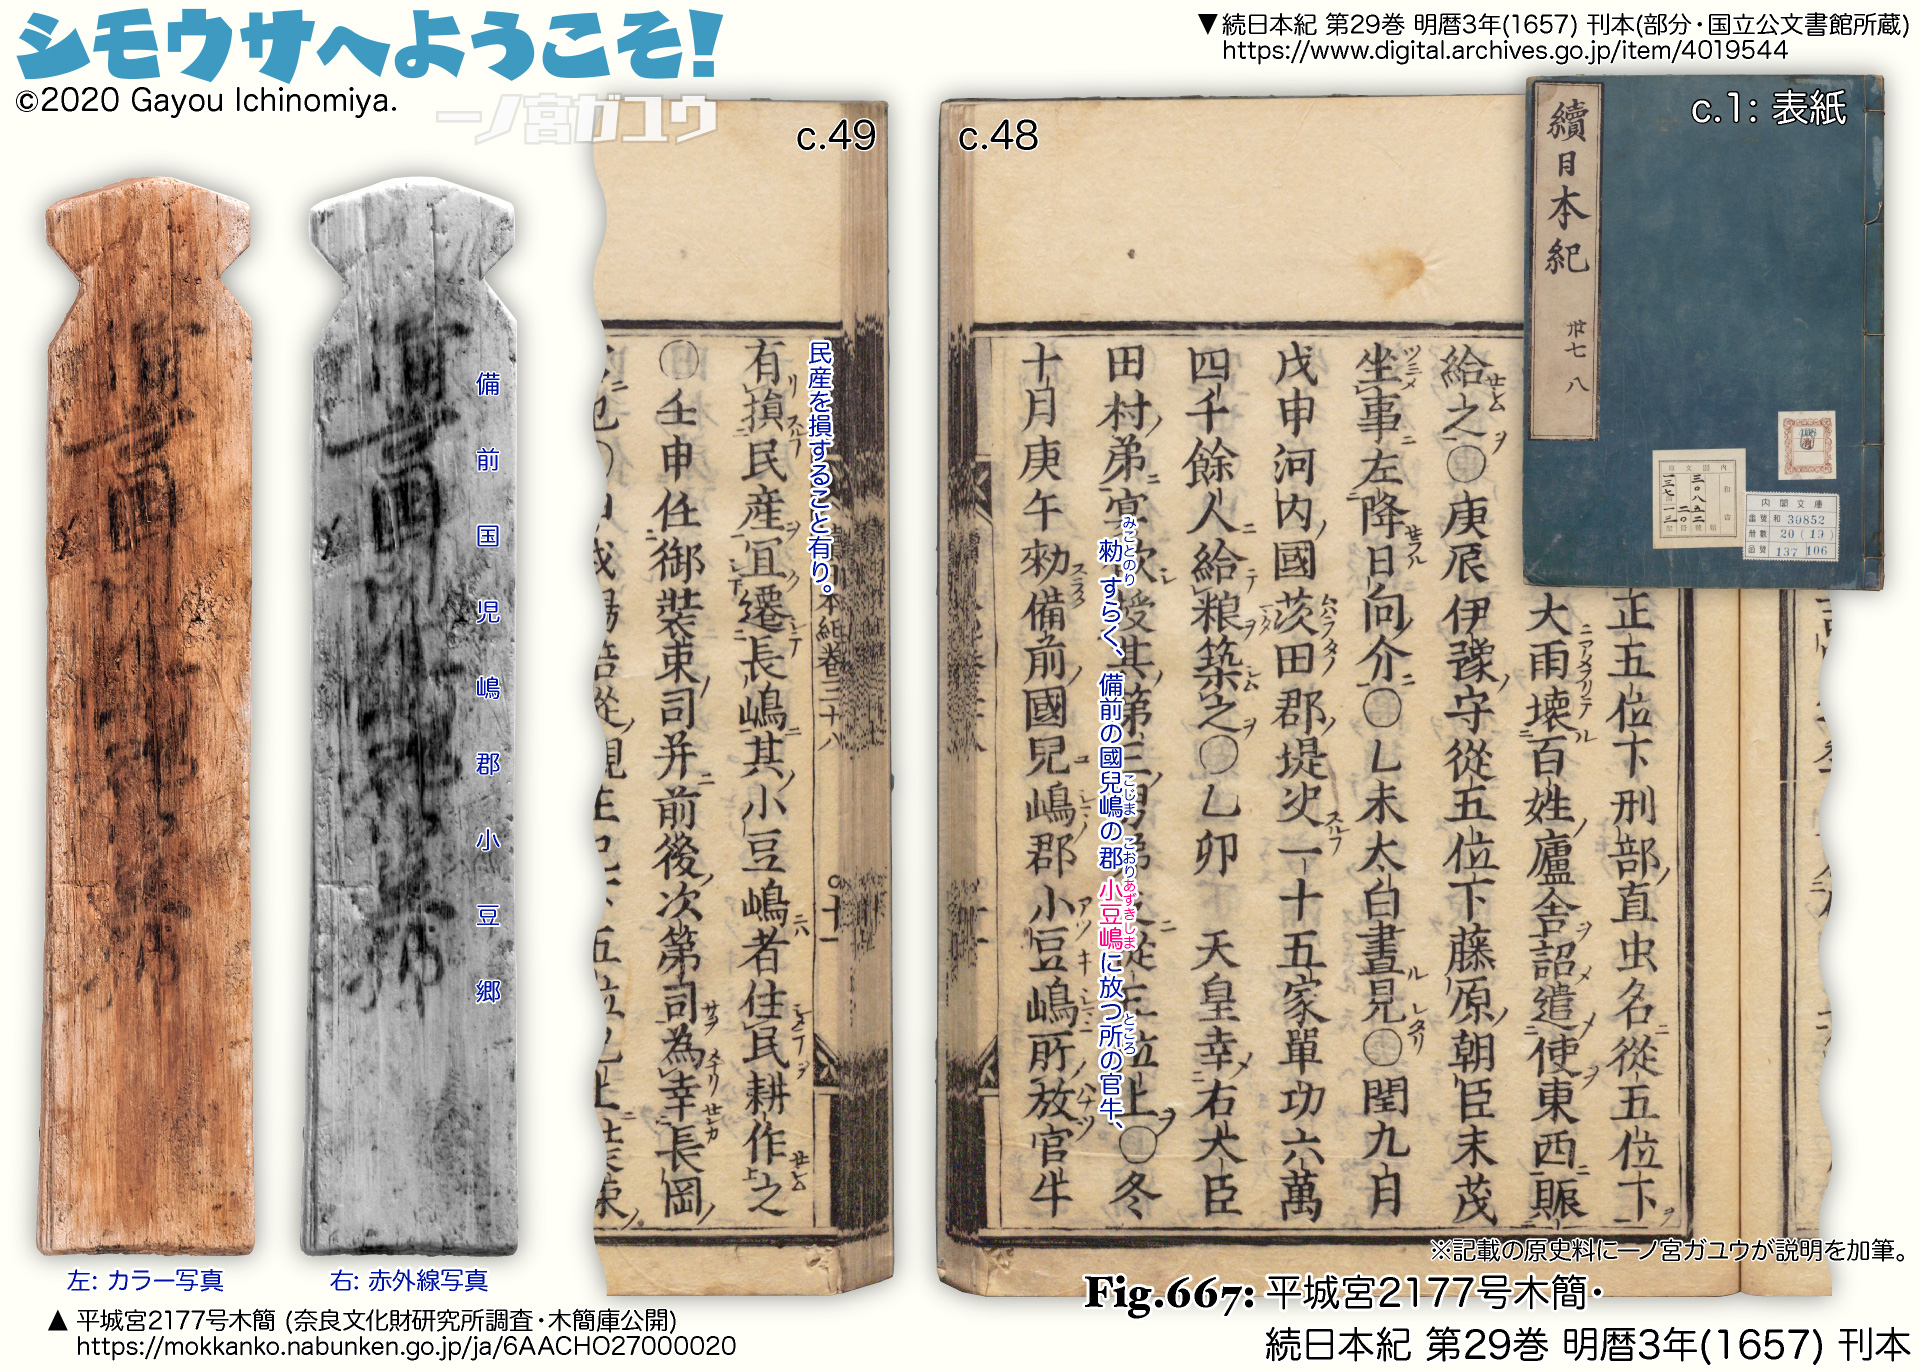 シモウサへようこそ!
©2020 Gayou Ichinomiya.
一ノ宮ガユウ
▼続日本紀 第29巻 明暦3年(1657) 刊本(部分・国立公文書館所蔵)
https://www.digital.archives.go.jp/item/4019544
c.1: 表紙
續日本紀 卅七 八
内閣文庫
番號 和 39852
冊數 20(19)
函號 137 106
c.48
正五位下刑部直虫名從五位下
大雨壊百姓廬舎詔遣使東西賑
給之○庚辰伊豫守從五位下藤原朝臣末茂
坐事左降日向介○乚未太白晝見○閏九月
戊申河内國茨田郡堤决一十五家單功六萬
四千餘人給粮築之○乙卯 天皇幸右大臣
田村弟宴飲授其第三
上○冬
十月庚午勑備前國兒嶋郡小豆嶋所放官牛
勑すらく、備前の國兒嶋の郡小豆嶋に放つ所の官牛、
みことのり
こじま
こおり
あずきしま
ところ
c.49
民産を損すること有り。
有損民産冝遷長嶋其小豆嶋者住民耕作之
○壬申任御装束司并前後次第司為幸長岡
備前国児嶋郡小豆郷
左: カラー写真
右: 赤外線写真
▲ 平城宮2177号木簡 (奈良文化財研究所調査・木簡庫公開)
https://mokkanko.nabunken.go.jp/ja/6AACHO27000020
※記載の原史料に一ノ宮ガユウが説明を加筆。
Fig.667: 平城宮2177号木簡・
続日本紀 第29巻 明暦3年(1657) 刊本